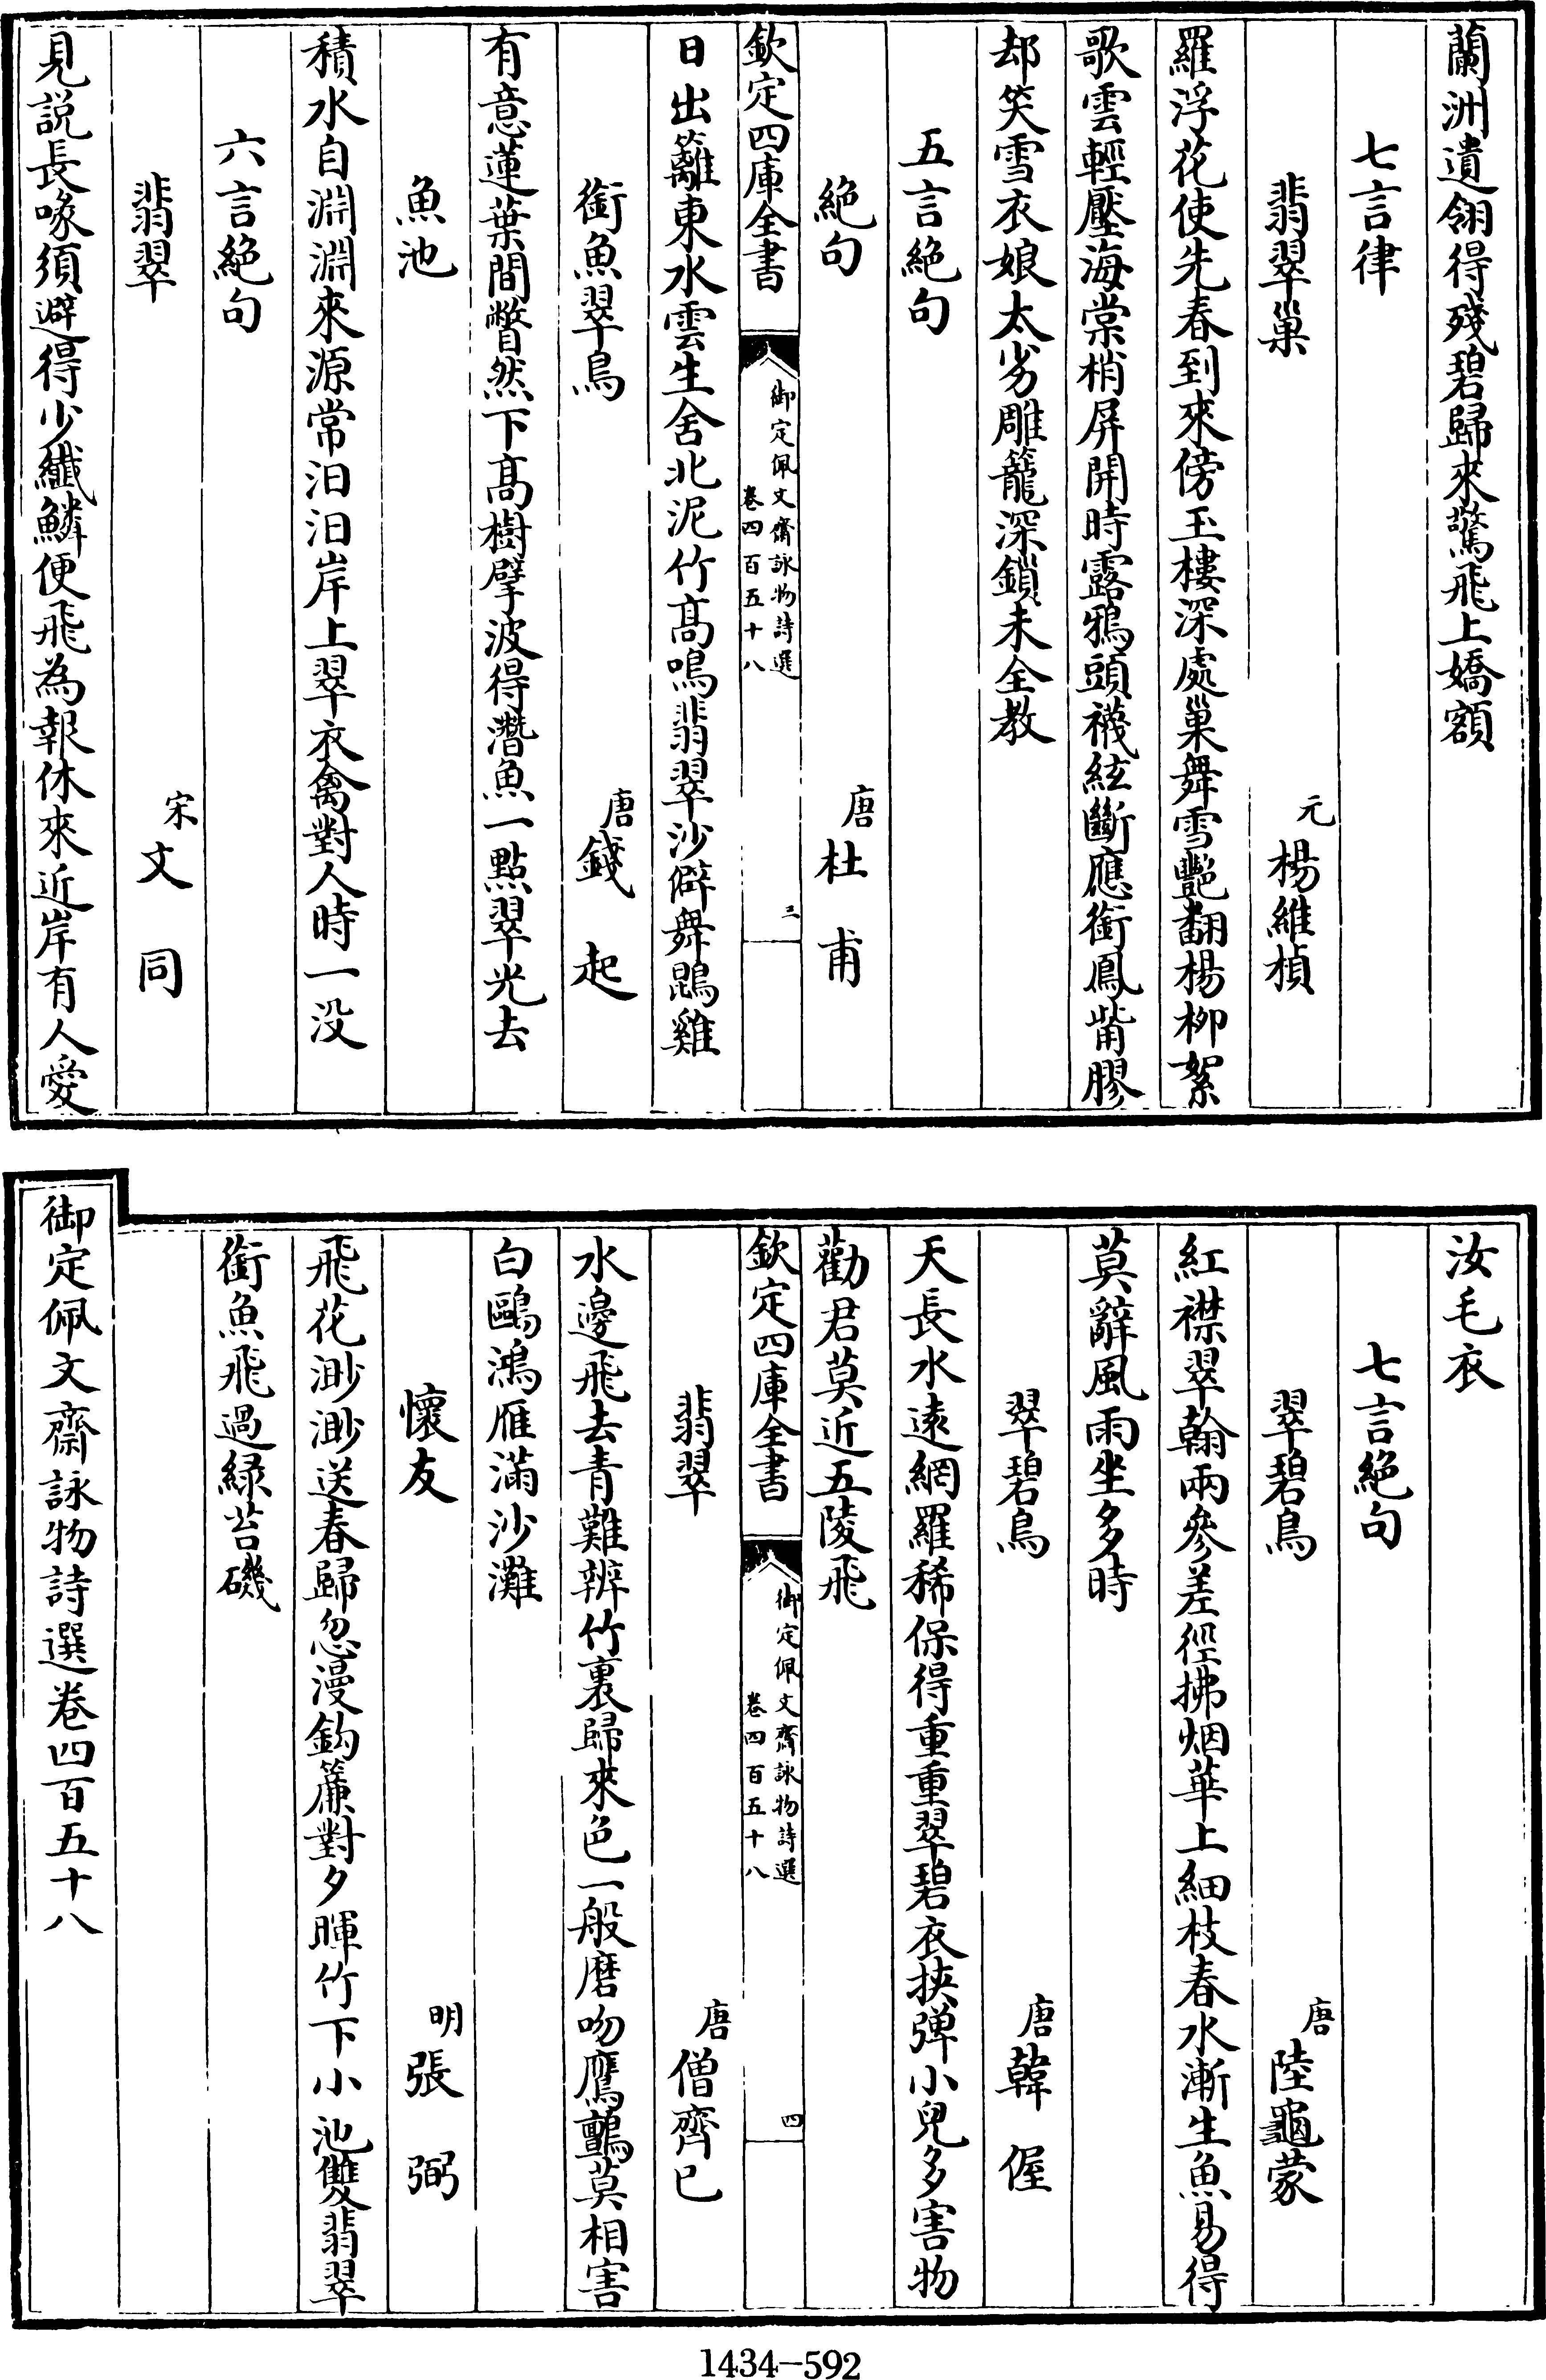 蘭洲遺翎得殘碧歸來驚飛上嬌額
七言律
翡翠巢 元楊維楨
羅浮花使先春到來傍玉樓深處巢舞雪豔翻楊柳絮
歌雲輕壓海棠梢屏開時露鴉頭襪絃斷應銜鳳觜膠
却笑雪衣娘太劣雕籠深鎖未全教
五言絶句
絶句 唐杜甫
欽定四庫全書
御定佩文齋詠物詩選
卷四百五十八
三
日出籬東水雲生舍北泥竹髙鳴翡翠沙僻舞鵾雞
銜魚翠鳥 唐錢起
有意蓮葉間瞥然下髙樹擘波得潛魚一點翠光去
魚池
積水自淵淵來源常汩汩岸上翠衣禽對人時一没
六言絶句
翡翠 宋文同
見説長喙須避得少纖鱗便飛為報休來近岸有人愛
汝毛衣
七言絶句
翠碧鳥 唐陸龜蒙
紅襟翠翰兩參差徑拂烟華上細枝春水漸生魚易得
莫辭風雨坐多時
翠碧鳥 唐韓偓
天長水遠網羅稀保得重重翠碧衣挾彈小兒多害物
勸君莫近五陵飛
欽定四庫全書
御定佩文齋詠物詩選
卷四百五十八
四
翡翠 唐僧齊已
水邊飛去青難辨竹裏歸來色一般磨吻鷹鸇莫相害
白鷗鴻雁滿沙灘
懷友 明張弼
飛花渺渺送春歸忽漫鈎簾對夕暉竹下小池雙翡翠
銜魚飛過緑苔磯
御定佩文齋詠物詩選卷四百五十八
1434-592